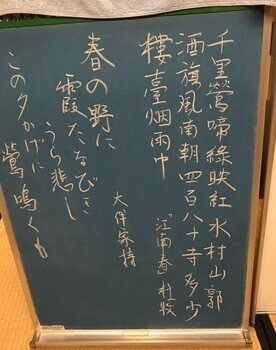 千里鶯啼綠映紅 水村山郭
酒旗風南朝四百八十寺 多少
樓臺烟雨中 「江南春」杜牧
大伴家持
春の野に
霞たなびき
うら悲し
この夕かげに
鶯鳴くも